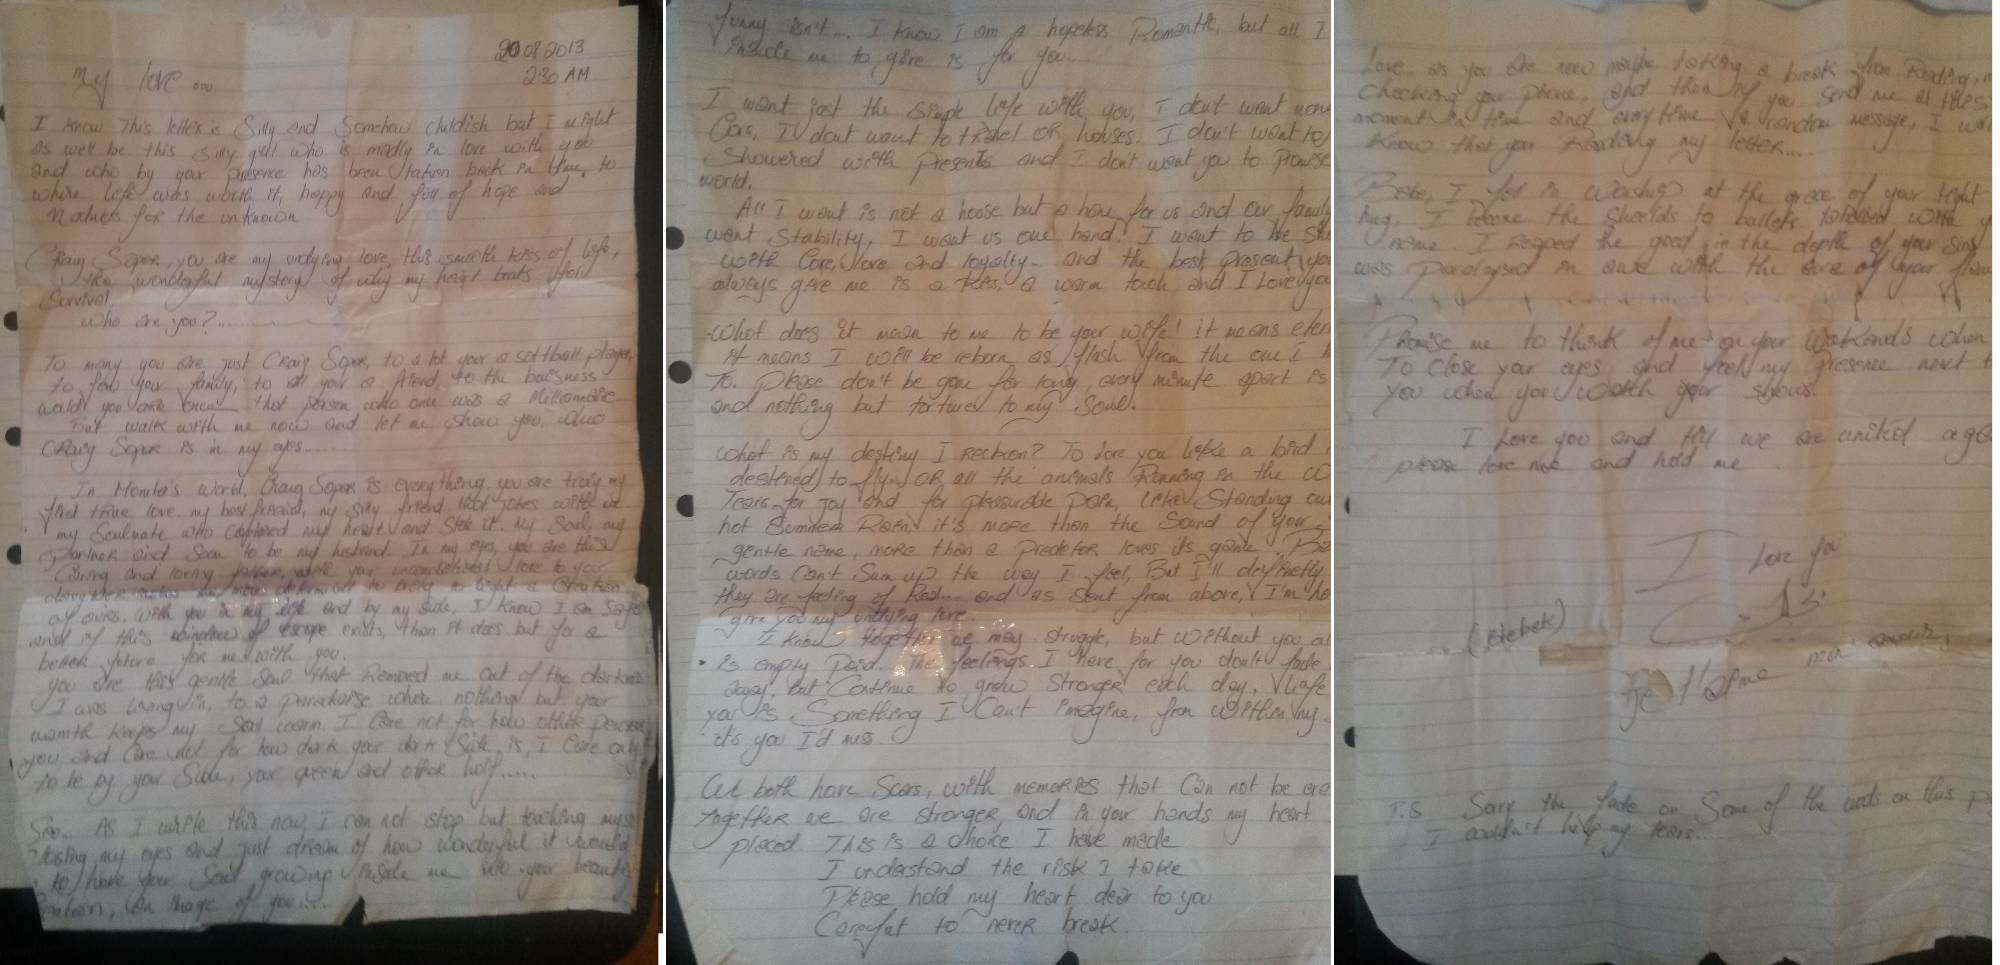 2008 2013
2:30 AM
My love ....
I know this letter is silly and somehow childish but I might
as well be this silly girl who is madly in love with you
and who by your presence has been taken back in time, to
where life was worth it, happy and full of hope and
for the unknown
Craig Soper, you are my undying love, this smooth kiss of life,
the wonderful mystery of why my heart beats for
survival
who are you?.....
To many you are just Craig Soper, to a lot your a softball player,
to few your family, to all your a friend, to the
world you are that person who once was a Millionnaire
But walk with me now and let me show you, who
Craig Soper is in my eyes.....
In World, Craig Soper is everything, you are truly my
first true love, my best friend, my silly friend that jokes with me
my Soulmate who captured my heart and stole it, My Soul, my
Partner and Soon to be my husband. In my eyes, you are this
Caring and loving father, your unconditional love to your
daughter to bring to light a Creation
of ours. With you in my life and by my side, I know I am Safe
and if this window of escape exists, then it does but for a
better future for me with you.
you are this gentle Soul that Removed me out of the darkness
I was living in, to a where nothing but your
warmth keeps my Soul warm. I Care not for how others perceive
you and Care not for how dark your dark Side is, I Care only
to be by your Side, your queen and other half.....
See... As I write this now I can not stop but
closing my eyes and just dream of how wonderful it would
to have your Seed growing inside me into your beauty
an image of you....
funny isn't... I know I am a hopeless Romantic, but all I
inside me to give is for you...
I want just the simple life with you, I don't want
Cars, I dont want to travel OR houses. I don't want to
Showered with Presents and I don't want you to Promise
world.
All I want is not a house but a home for us and our family
want Stability, I want us one hand. I want to be
with Care, love and loyalty - and the best present you
always give me is a kiss, a warm touch and I Love you
what does it mean to me to be your wife! it means
it means I will be reborn as flash from the one I
To. Please don't be gone for long, every minute apart is
and nothing but torture to my Soul.
what is my destiny I Reckon? To love you like a bird
destened to fly. OR all the animals Running in the
Tears for joy and for pleasurable pain, like Standing
hot Summer Rain it's more than the Sound of your
gentle name, more than a Predetor loves its game.
words Can't Sum up the way I feel, But I'll
they are feeling of Real... and as Sent from above, I'm
give you my undying love.
I know together we may struggle, but without you
is empty The feelings I have for you don't fade
away, but Continue to grow Stronger each day,
you is Something I Can't imagine, from within my
it's you I'd miss.
We both have Scars, with memories that Can not be
together we are stronger, and in your hands my heart
placed. This is a choice I have made
I understand the risk I take
Please hold my heart dear to you
Carefat to never break.
Love, as you are now maybe taking a break from Reading,
checking your phone, and then you send me at
moment in time and everytime a random message, I
know that your Reading my letter....
Bebe, I fell in Worship at the grace of your tight
hug. I became the Sheelds to bullets with
name. I Reaped the good in the depth of your Sins
was Paralysed in awe with the of your
Promise me to think of me on your Wakends when
To close your eyes and feel my Presence next
you when you watch your shows.
I Love you and till we are united
please love me and hold me
I love you
(Bebek)
Je t'aime mon amour,
P.S Sorry the fade on Some of the words on this
I couldn't help my tears...